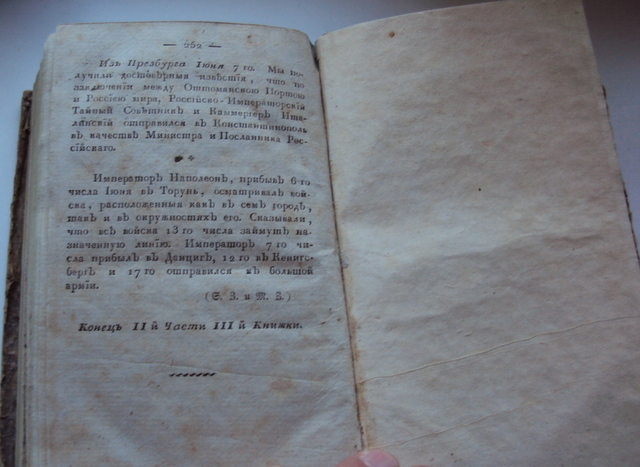 — 262 —
Изъ Презбурга Іюня 7 го. Мы по-
лучили достовѣрныя извѣстія, что по
заключеніи между Оттоманскою Портою
и Россіею мира, Россійско-Императорскій
Тайный Совѣтникъ и Каммергеръ Ита-
линскій отправился въ Константинополь
въ качествѣ Министра и Посланника Рос-
сійскаго.
Императоръ Наполеонъ, прибывъ 6 го
числа Іюня въ Торунь, осматривалъ вой-
ска, расположенныя какъ въ семъ городѣ,
такъ и въ окружностяхъ его. Сказывали,
что всѣ войска 13 го числа займутъ на-
значенную линію. Императоръ 7 го чи-
сла прибылъ въ Данцигъ, 12 го въ Кенигс-
бергъ и 17 го отправился къ большой
арміи.
(S. Z. и M. Z.)
Конецъ II й Части III й Книжки.